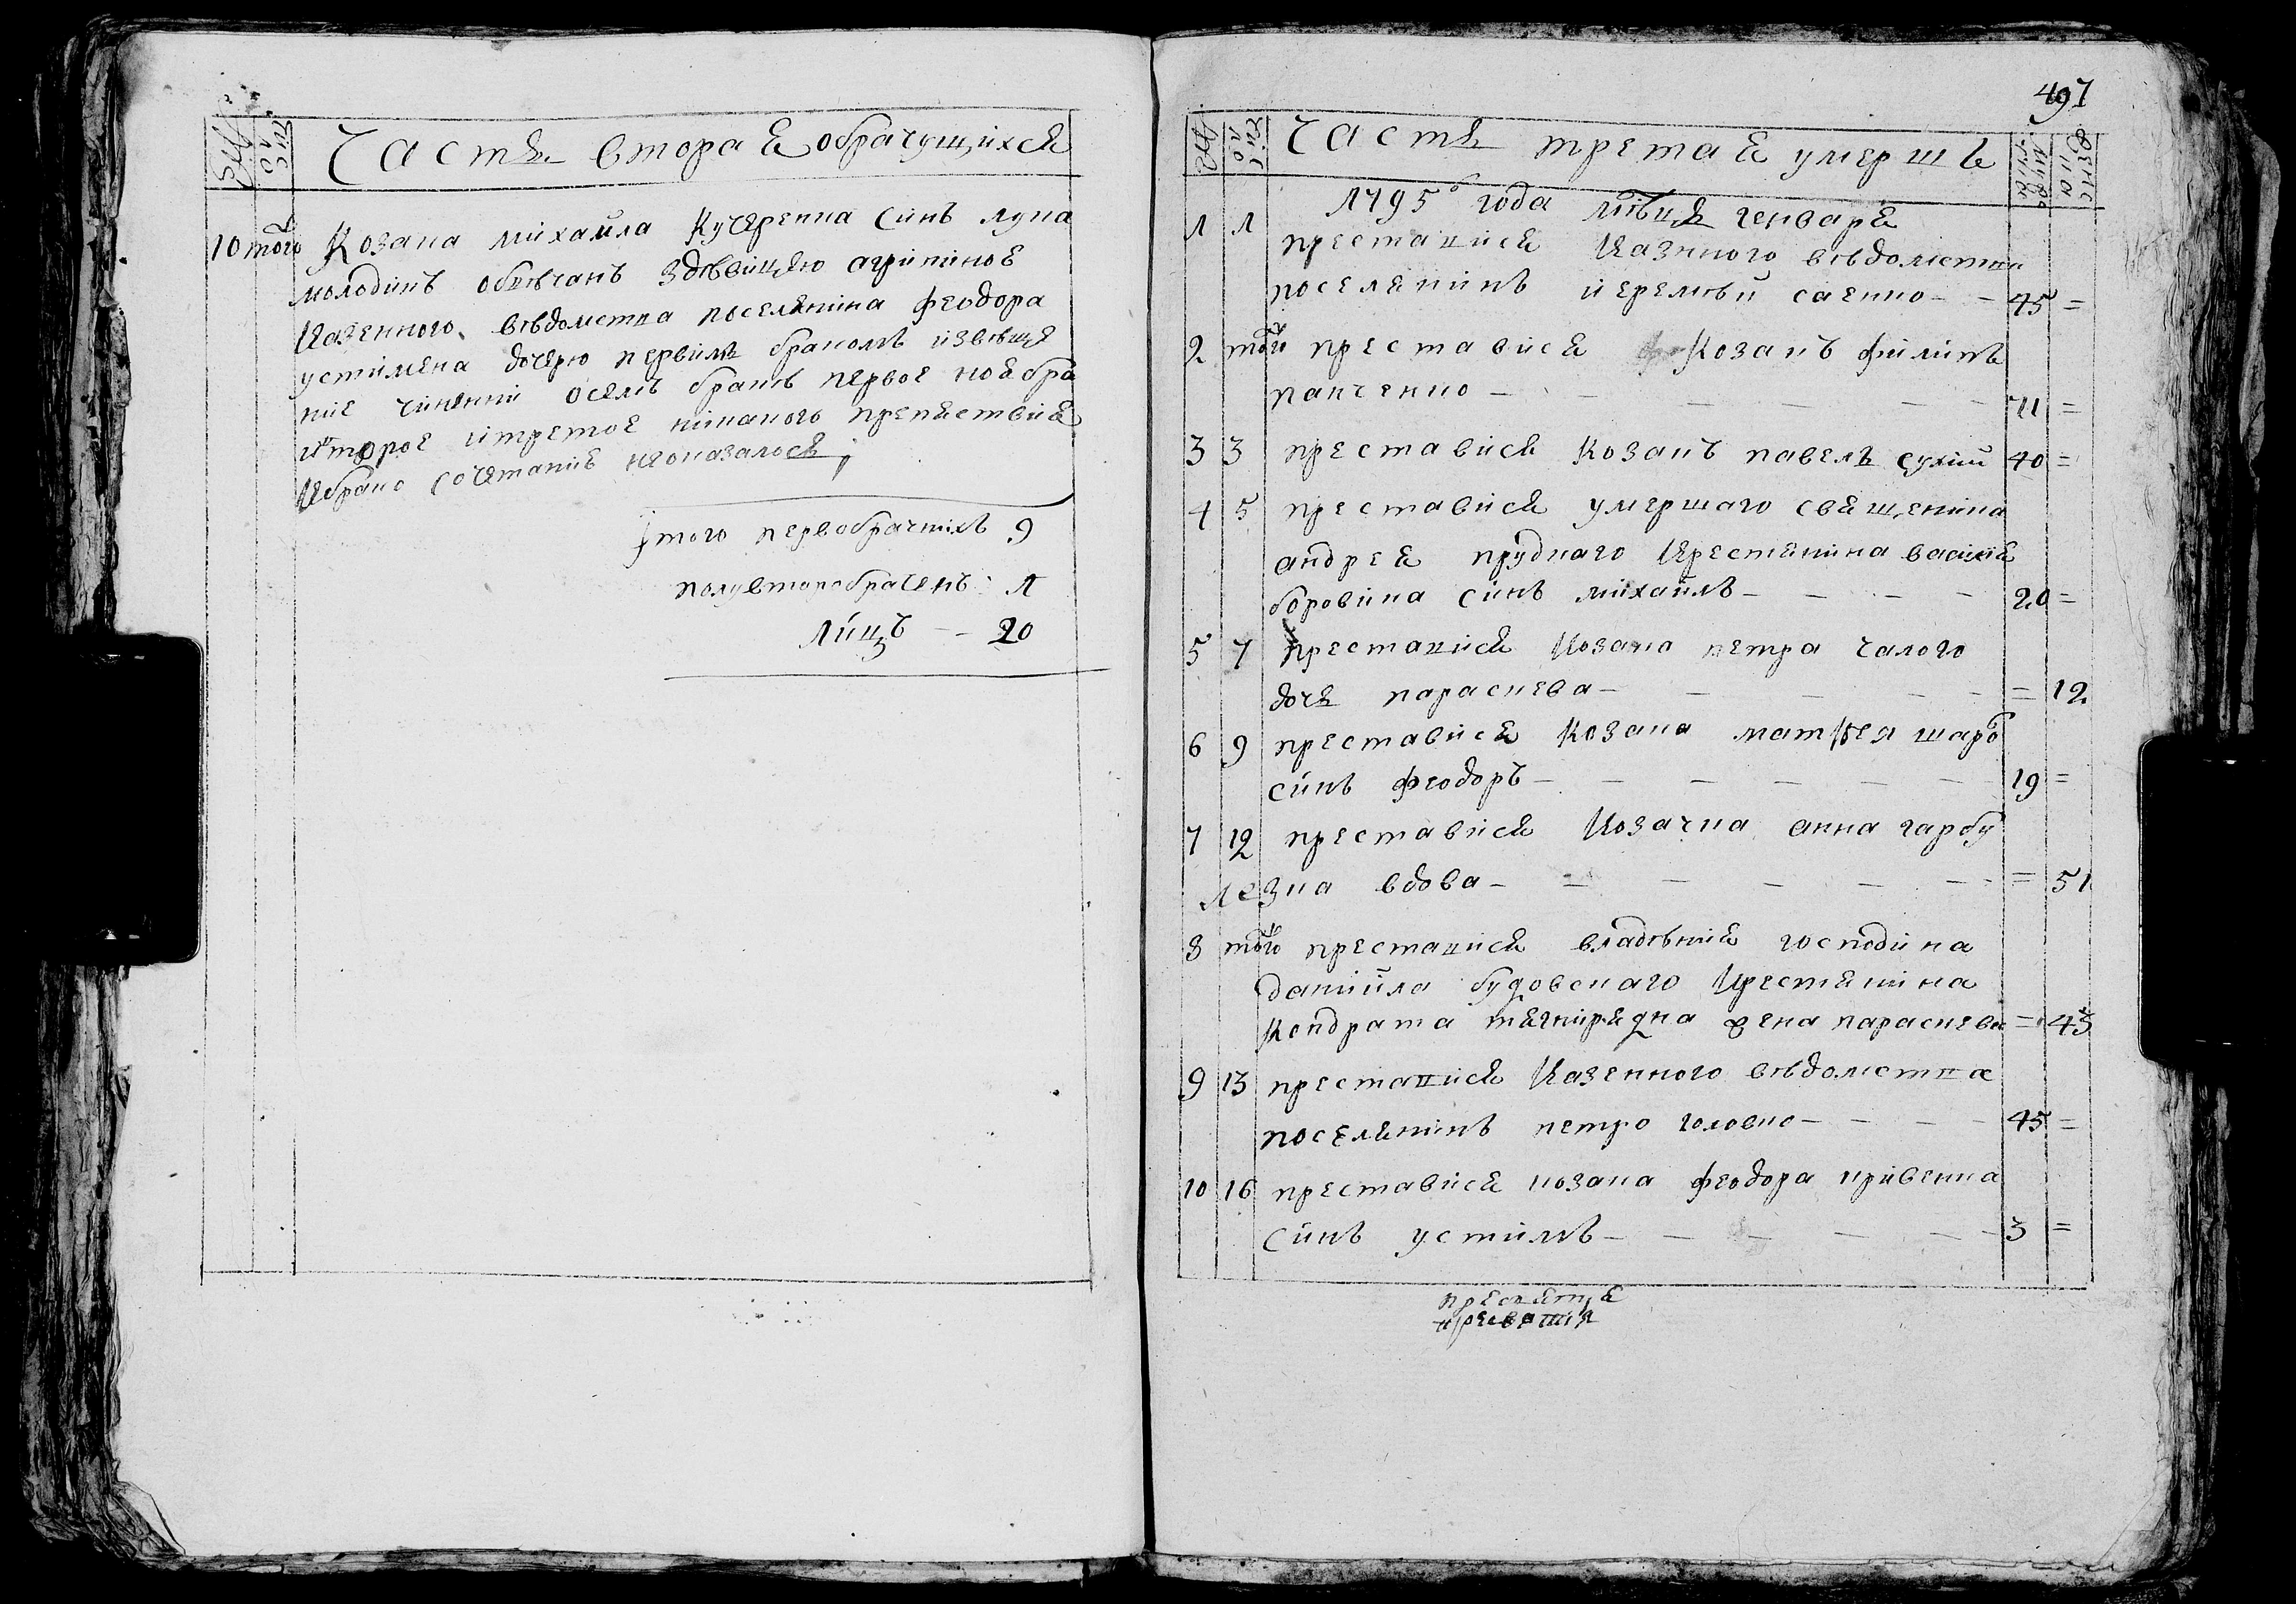 Часть вторая обрачущихся
число
10 того Козака михайла Кучеренка синъ лука
молодикъ обвѣчанъ здѣвицею агрипиною
Казенного вѣдомства поселянина феодора
устимена дочерю первимъ бракомъ извѣще
ние чинений осемъ бракъ первое ноебра
второе итретое никакого препятствия
Ибрако сочетание непоказалося
Итого первобрачнихъ 9
полувторобраченъ 1
лицъ - - 20
497
число
Часть третая умершь
мужеска
женска
1795го года мѣсяцъ генварь
1 1 преставися Казнного вѣдомства
поселянинъ иеремѣй саенко - - 45 =
2 того преставися Козакъ филипъ
панченко - - - - - 71 =
3 3 преставися Козакъ павелъ сухий 40 =
4 5 преставися умершаго священика
андрея прудкаго крестянина василия
боровика синъ михаилъ - - - - 20 =
5 7 преставися Козака петра чалого
дочь параскева - - - - - = 12
6 9 преставися Козака матѳея шарб
синъ феодоръ - - - - - - 19 =
7 12 преставися Козачка анна гарбу
лезка вдова - - - - - - = 51
8 того преставися владѣния господина
даниила будовскаго крестянина
Кондрата жена параскева = 45
9 13 преставися Казенного вѣдомства
поселянинъ петро головко - - - - 45 =
10 16 преставися козака феодора кривенка
синъ устимъ - - - - - - 3 =